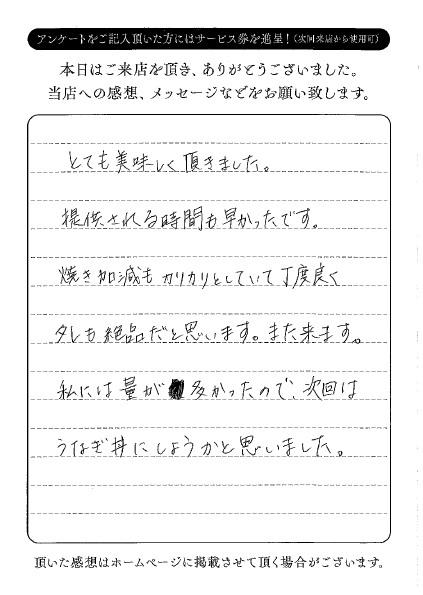 アンケートをご記入頂いた方にはサービス券を進呈！（次回来店から使用可）
本日はご来店を頂き、ありがとうございました。
当店への感想、メッセージなどをお願い致します。
とても美味しく頂きました。
提供される時間も早かったです。
焼き加減もカリカリとしていて丁度良く
タレも絶品だと思います。また来ます。
私には量が多かったので、次回は
うなぎ丼にしようかと思いました。
頂いた感想はホームページに掲載させて頂く場合がございます。